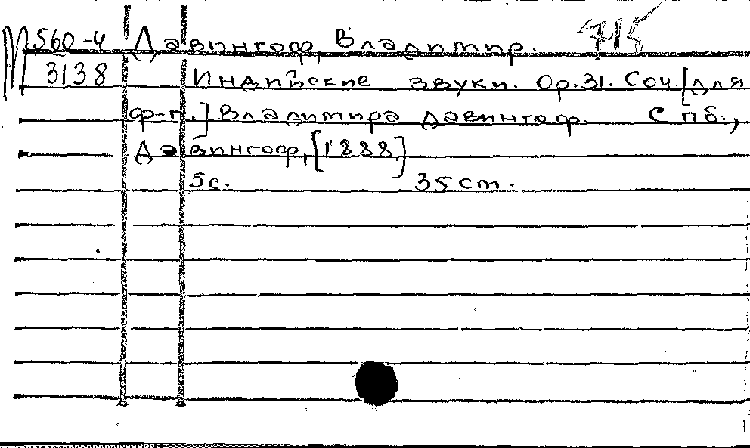 М560-4 Давингоф, Владимир. 715
3138 Индийские звуки. Op.31. Соч. [для
ф-п.] Владимира Давингоф. СПб.,
Давингоф, [1888]
5с. 35 cm.